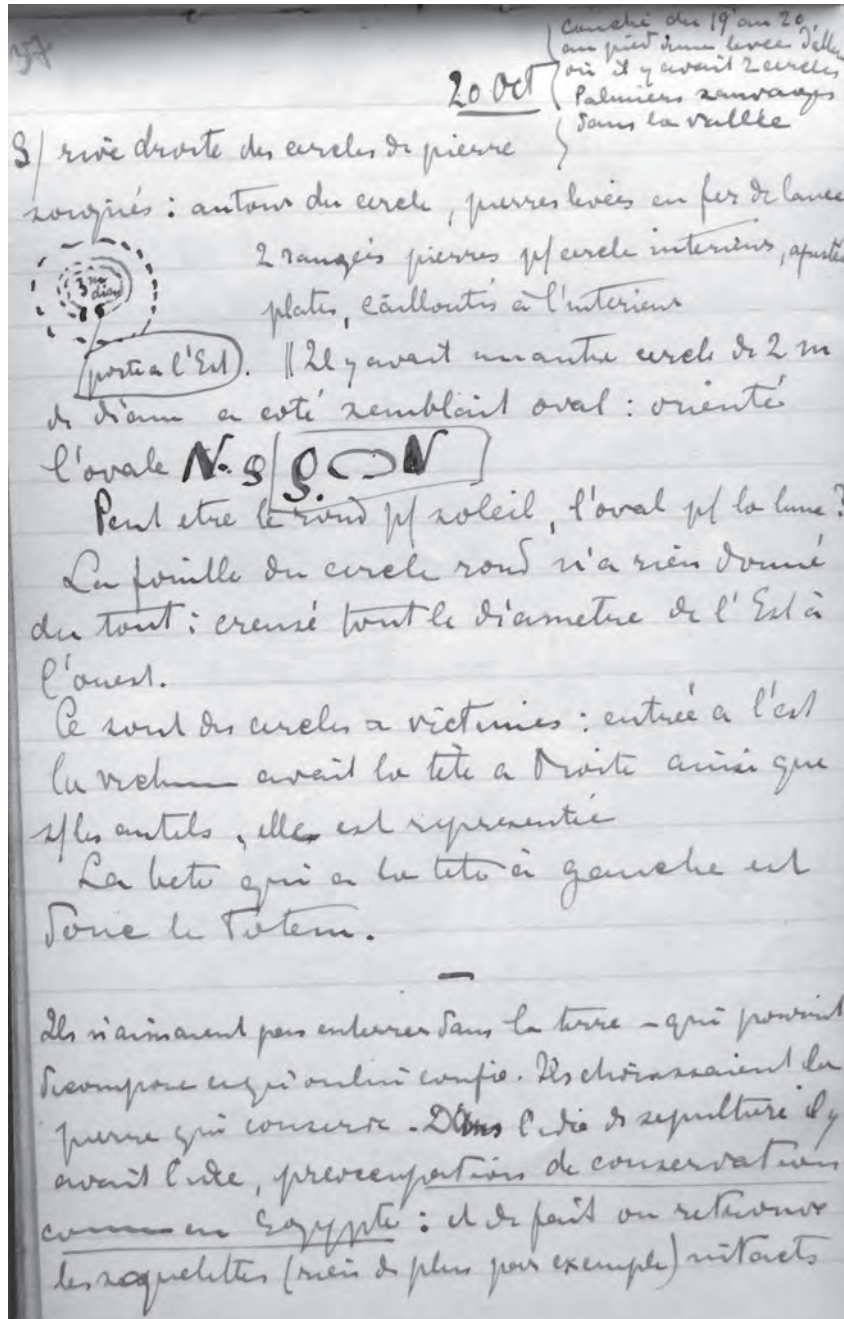 37
Couché du 19 au 20
au pied d'une levée
où il y avait 2 cercles
Palmiers sauvages
dans la vallée
20 Oct
S/ rive droite des cercles de pierre
soignés : autour du cercle, pierres levées en fer de lance
2 rangées pierres p/ cercle interieur,
plates, cailloutis à l'interieur
3 m
diam
porte a l'Est). || Il y avait un autre cercle de 2 m
de diam a coté semblait oval : orienté
l'ovale N. S S. N
Peut etre le rond p/ soleil, l'oval p/ la lune ?
La fouille du cercle rond n'a rien donné
du tout : creusé tout le diametre de l'Est à
l'ouest.
Ce sont des cercles a victimes : entrée a l'est
la victime avait la tête a droite ainsi que
s/ les autels, elle est representée
La bete qui a la tete à gauche est
donc le Totem.
Ils n'aimaient pas enterrer dans la terre – qui pourrit
decompose ce qu'on lui confie. Ils choisissaient la
pierre qui conserve. Dans l'idée de sepulture il y
avait l'idee, preoccupation de conservation
comme en Egypte : et de fait on retrouve
les squelettes (rien de plus par exemple) intacts